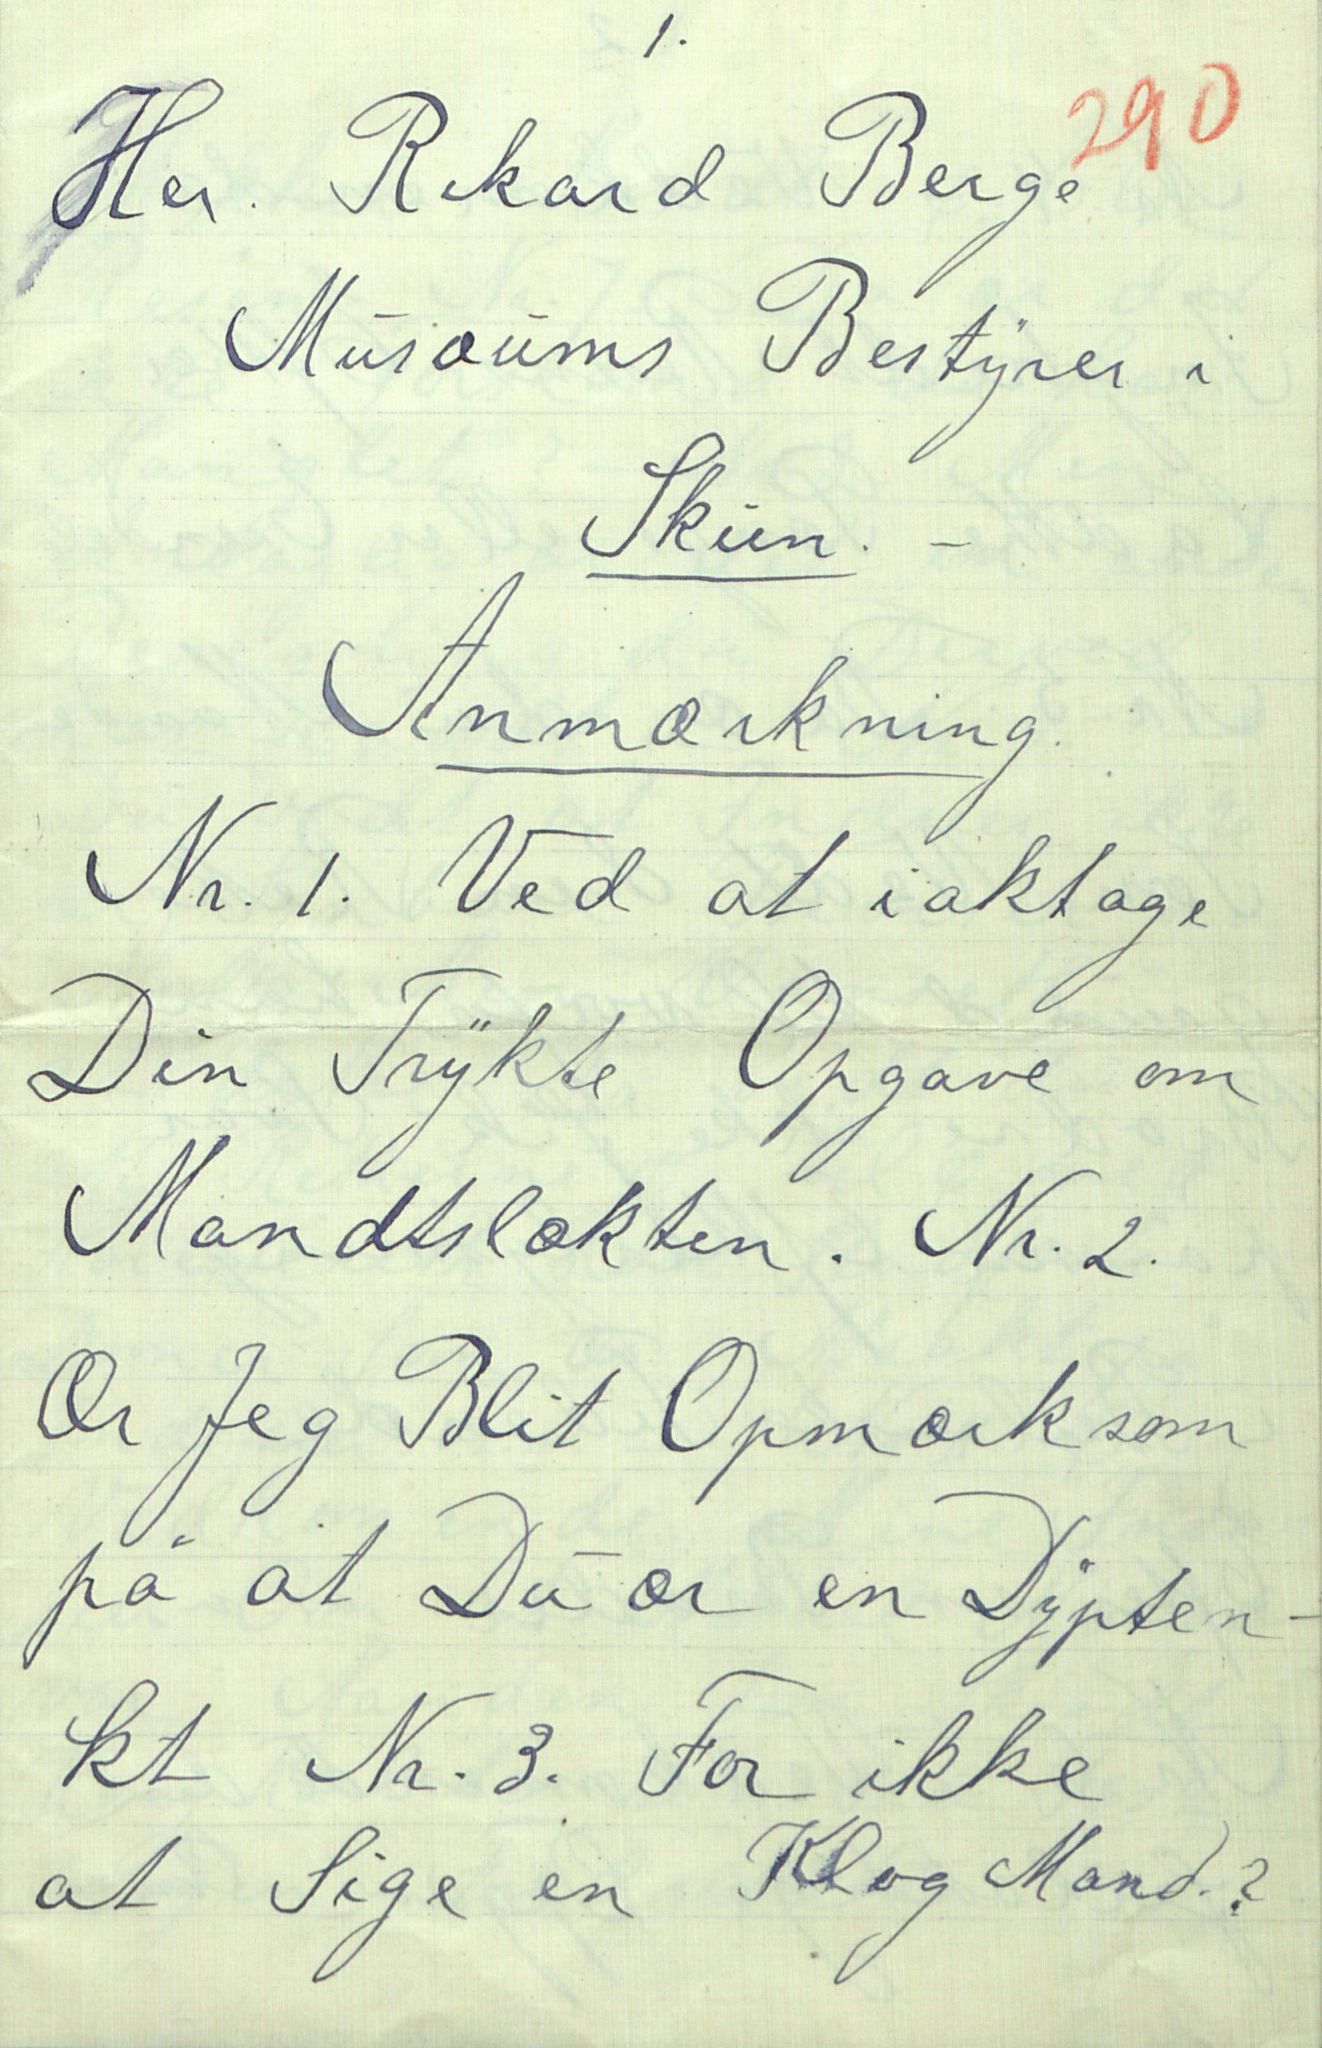 1.
290
Her. Rikard Berge
Musæums Bestÿrer i
Skien. -
Anmærkning.
Nr. 1. Ved at iaktage
Din Trÿkte Opgave om
Mandtslækten. Nr. 2.
Ær Jeg Blit Opmærksom
på at Du ær en Dÿpten-
kt Nr. 3. For ikke
at Sige en Klog Mand.?